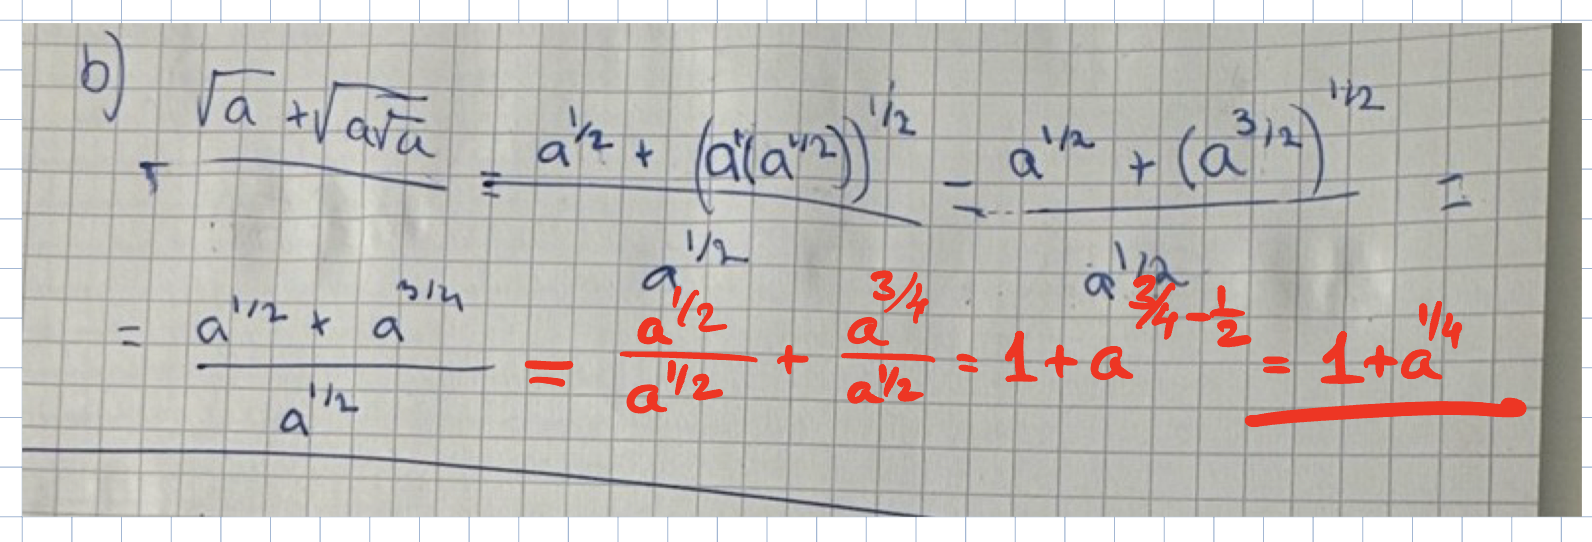 b) √a + √(a√a) = (a^1/2 + (a^1(a^1/2))^1/2) / a^1/2 = (a^1/2 + (a^3/2)^1/2) / a^1/2 =
= (a^1/2 + a^3/4) / a^1/2 = a^1/2 / a^1/2 + a^3/4 / a^1/2 = 1 + a^3/4 - 1/2 = 1 + a^1/4